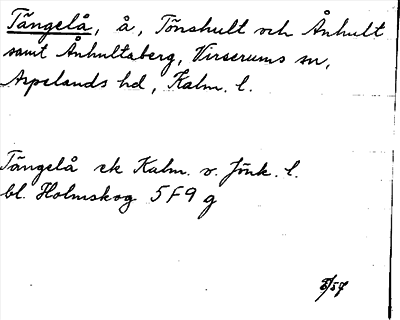 Tängelå, å, Tönshult och Ånhult
samt Ånhultaberg, Virserums sn,
Aspelands hd, Kalm. l.
Tängelå ek Kalm. o. Jönk. l.
bl. Holmskog 5F9g
/57